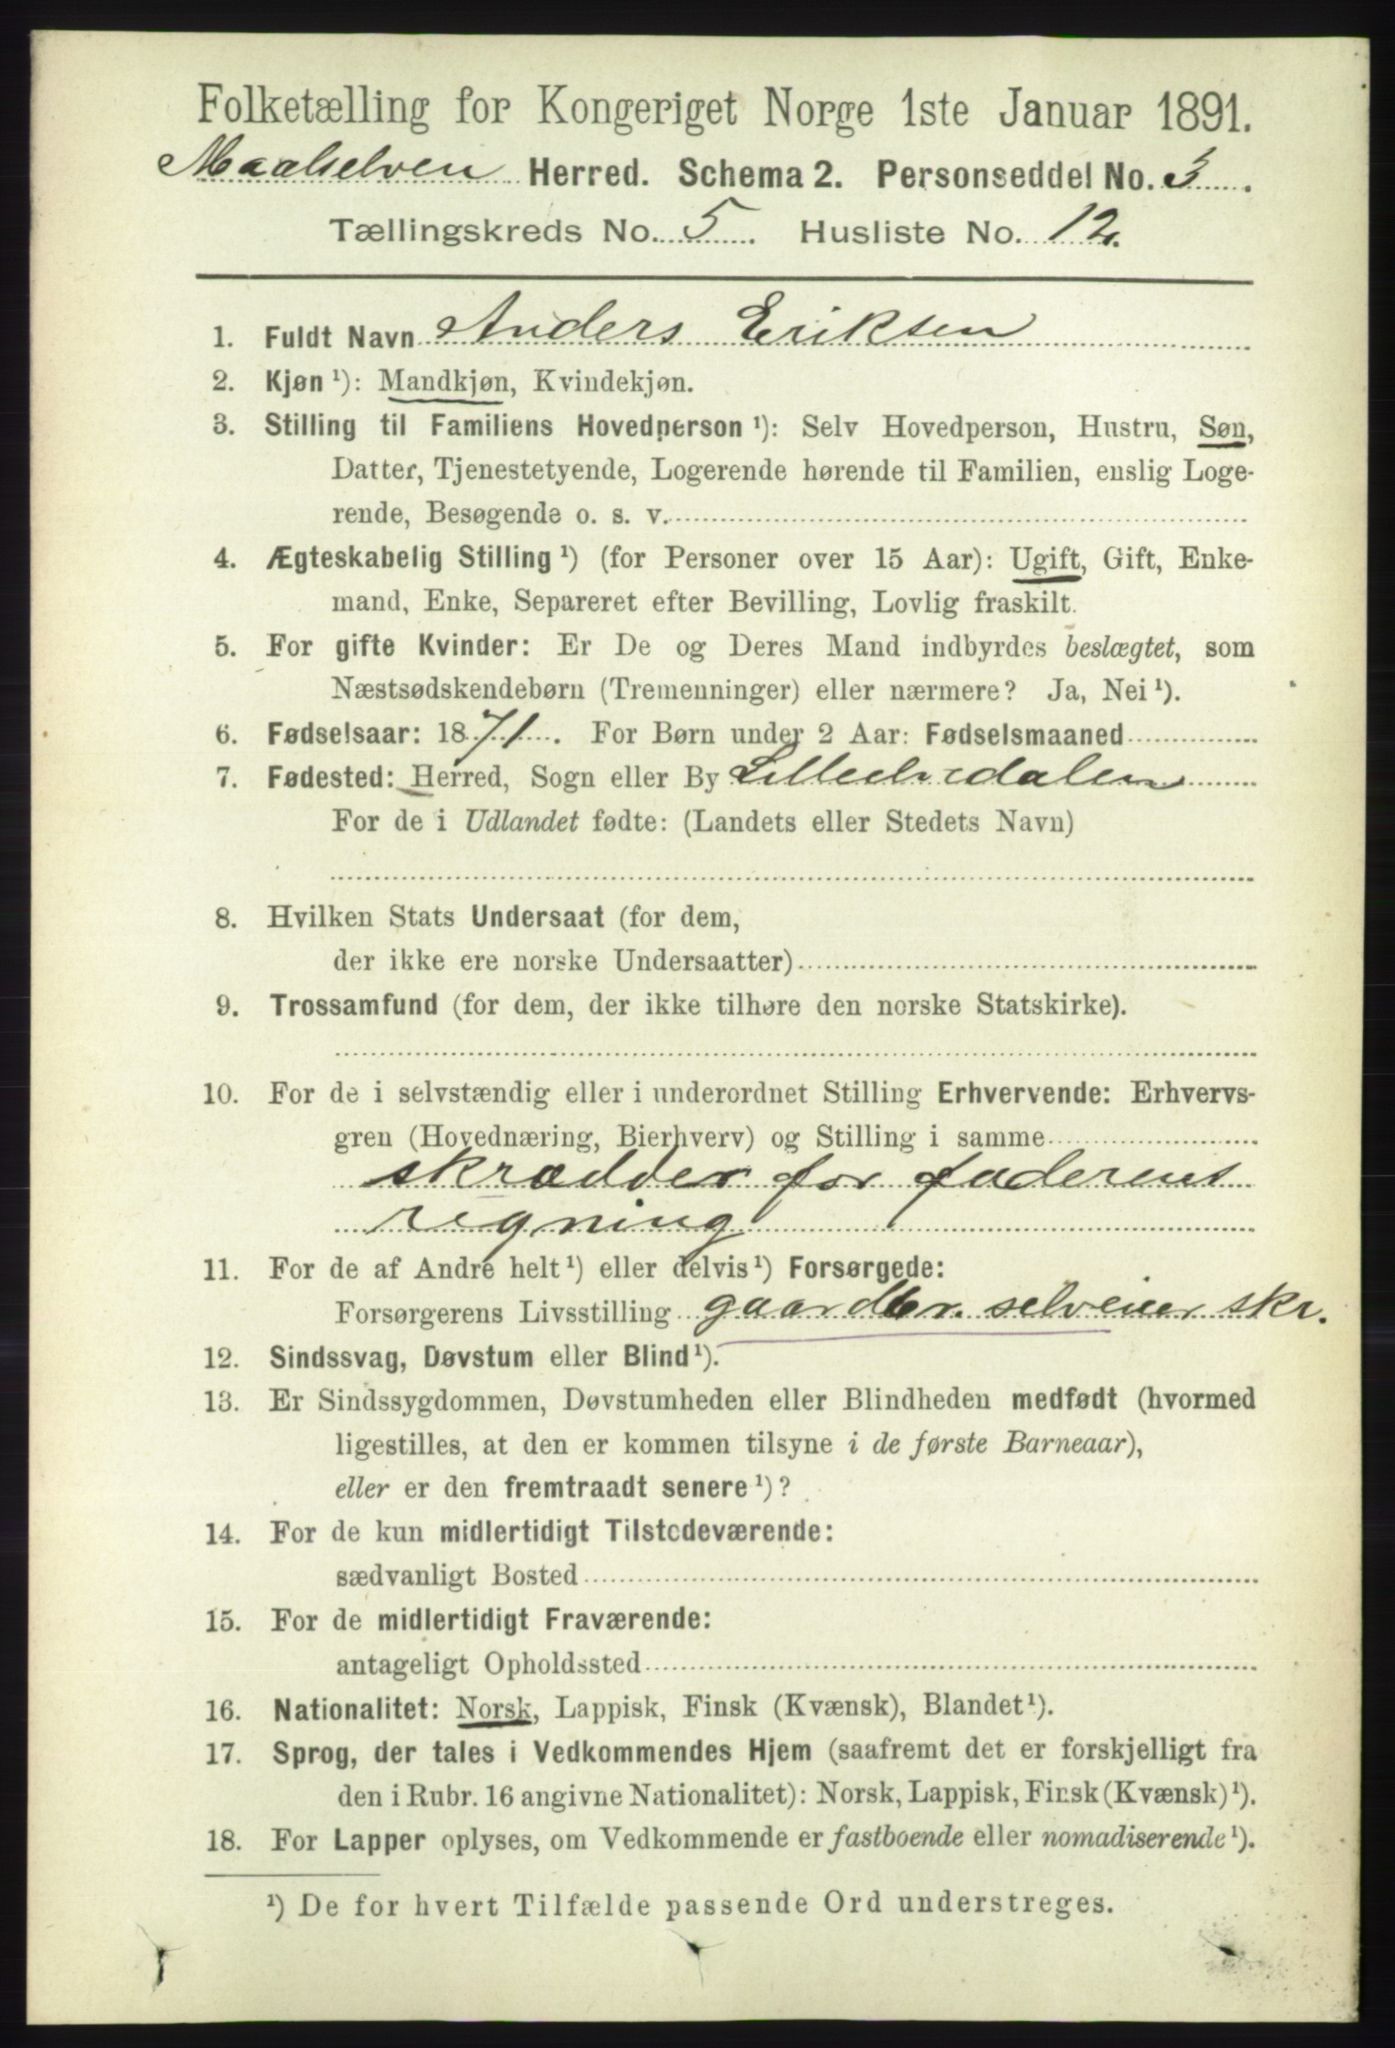 Folketælling for Kongeriget Norge 1ste Januar 1891.
Maalselven Herred. Schema 2. Personseddel No. 3.
Tællingskreds No. 5. Husliste No. 12.
1. Fuldt Navn Anders Eriksen
2. Kjøn ¹): Mandkjøn, Kvindekjøn.
3. Stilling til Familiens Hovedperson ¹): Selv Hovedperson, Hustru, Søn,
Datter, Tjenestetyende, Logerende hørende til Familien, enslig Loge-
rende, Besøgende o. s. v.
4. Ægteskabelig Stilling ¹) (for Personer over 15 Aar): Ugift, Gift, Enke-
mand, Enke, Separeret efter Bevilling, Lovlig fraskilt.
5. For gifte Kvinder: Er De og Deres Mand indbyrdes beslægtet, som
Næstsødskendebørn (Tremenninger) eller nærmere? Ja, Nei ¹).
6. Fødselsaar: 1871. For Børn under 2 Aar: Fødselsmaaned
7. Fødested: Herred, Sogn eller By Lilleelvedalen
For de i Udlandet fødte: (Landets eller Stedets Navn)
8. Hvilken Stats Undersaat (for dem,
der ikke ere norske Undersaatter)
9. Trossamfund (for dem, der ikke tilhøre den norske Statskirke).
10. For de i selvstændig eller i underordnet Stilling Erhvervende: Erhvervs-
gren (Hovednæring, Bierhverv) og Stilling i samme
skrædder for faderens
regning
11. For de af Andre helt ¹) eller delvis ¹) Forsørgede:
Forsørgerens Livsstilling gaardbr. selveier skr.
12. Sindssvag, Døvstum eller Blind ¹).
13. Er Sindssygdommen, Døvstumheden eller Blindheden medfødt (hvormed
ligestilles, at den er kommen tilsyne i de første Barneaar),
eller er den fremtraadt senere ¹)?
14. For de kun midlertidigt Tilstedeværende:
sædvanligt Bosted
15. For de midlertidigt Fraværende:
antageligt Opholdssted
16. Nationalitet: Norsk, Lappisk, Finsk (Kvænsk), Blandet ¹).
17. Sprog, der tales i Vedkommendes Hjem (saafremt det er forskjelligt fra
den i Rubr. 16 angivne Nationalitet): Norsk, Lappisk, Finsk (Kvænsk) ¹).
18. For Lapper oplyses, om Vedkommende er fastboende eller nomadiserende ¹).
¹) De for hvert Tilfælde passende Ord understreges.